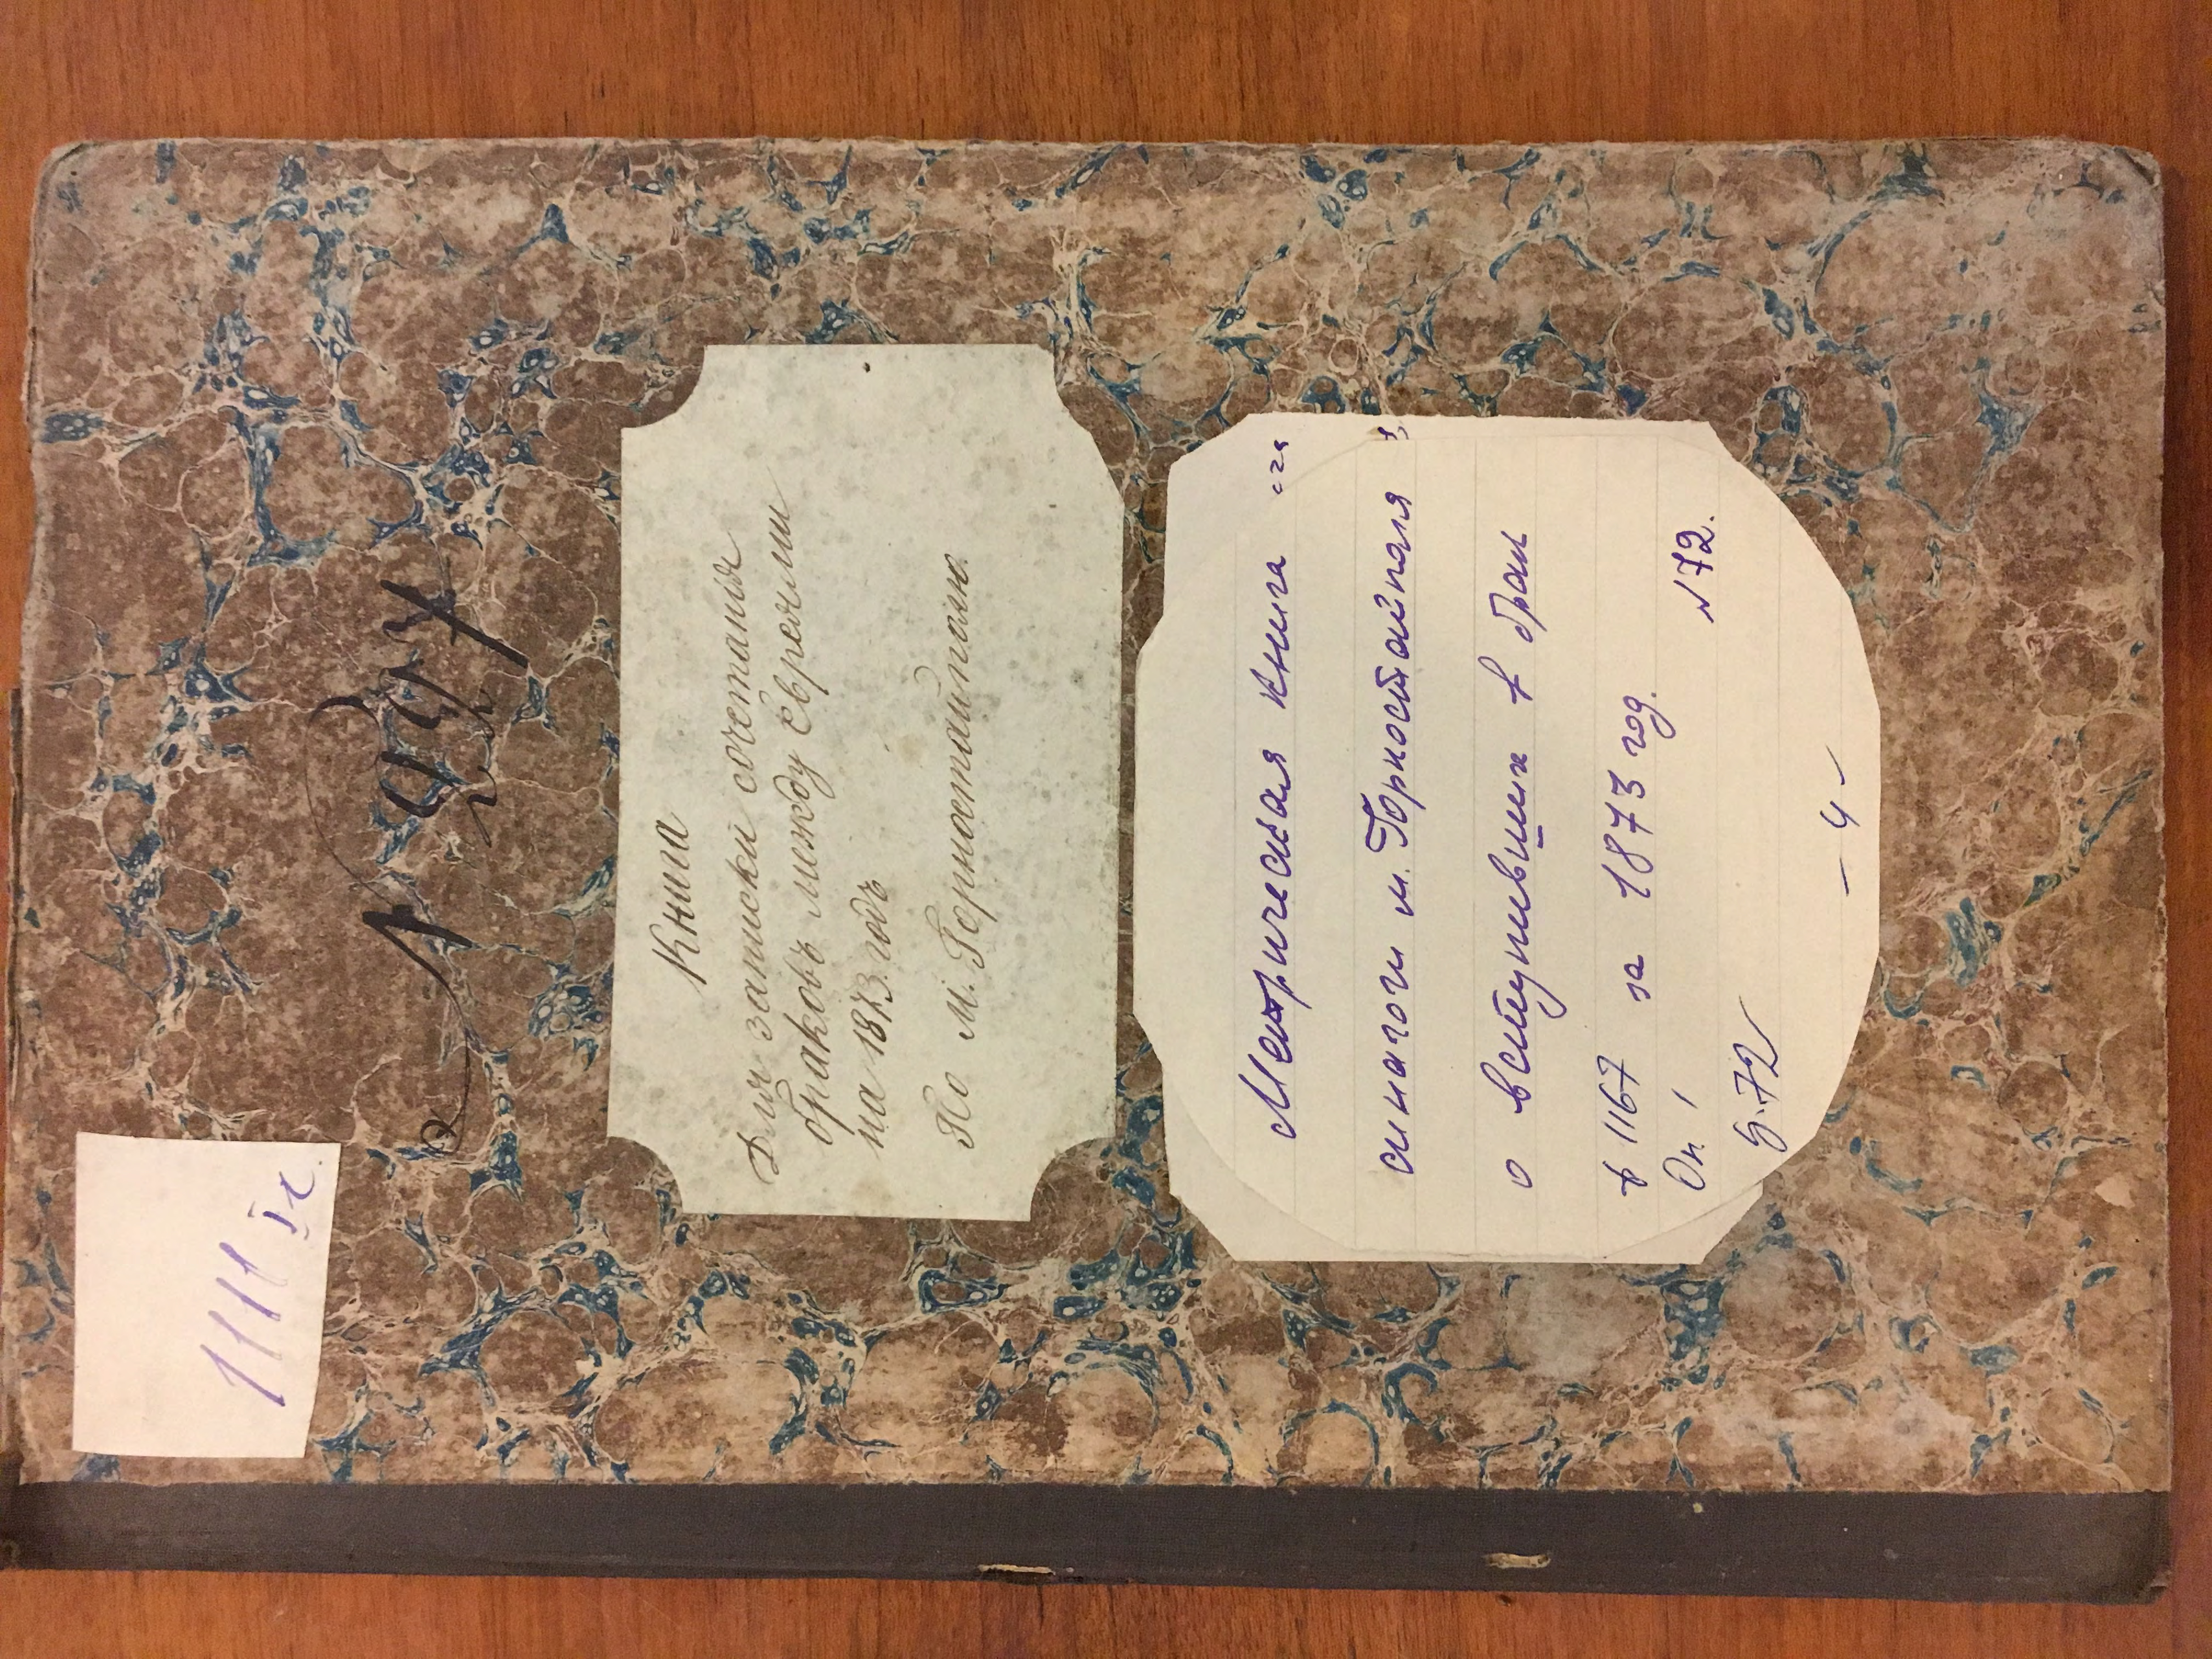 1111 Iк.
Книга
Для записки сочетанія
браковъ между Евреями
на 1873. годъ
По м. Горностайполю.
Метрическая книга
синагоги м. Горностайполя
о вступивших в брак
ф 1167 за 1873 год.
Оп. 1 N 72.
Д.72
– 4 –